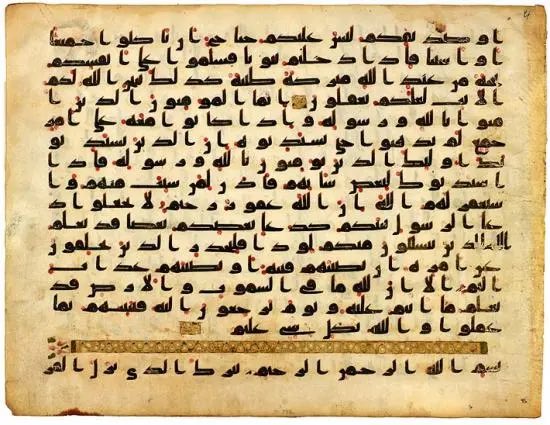 او صديقكم ليس عليكم جناح ان تاكلوا جميعا
او اشتاتا فاذا دخلتم بيوتا فسلموا على انفسكم
تحية من عند الله مبركة طيبة كذلك يبين الله لكم
الايت لعلكم تعقلون انما المومنون الذين ا
منوا بالله ورسوله واذا كانوا معه على امر
جمع لم يذهبوا حتى يستذنوه ان الذين يستذنو
نك اوليك الذين يومنون بالله ورسوله فاذا
استذنوك لبعض شانهم فاذن لمن شيت منهم وا
ستغفر لهم الله ان الله غفور رحيم لا تجعلوا د
عا الرسول بينكم كدعا بعضكم بعضا قد يعلم
الله الذين يتسللون منكم لواذا فليحذر الذين يخلفون
عن امره ان تصيبهم فتنة او يصيبهم عذاب
اليم الا ان لله ما في السموت والارض قد
يعلم ما انتم عليه ويوم يرجعون اليه فينبيهم بما
عملوا والله بكل شي عليم
بسم الله الرحمن الرحيم تبرك الذي نزل الفر